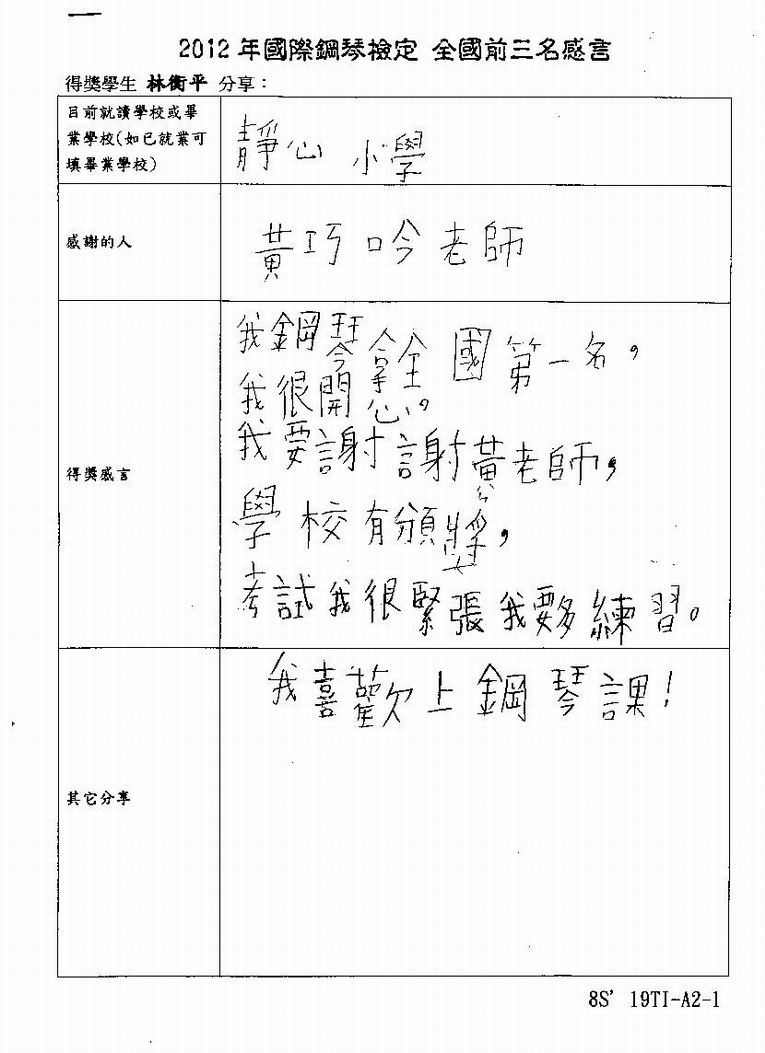 2012年國際鋼琴檢定 全國前三名感言
得獎學生 林衡平 分享：
目前就讀學校或畢
業學校(如已就業可
填畢業學校)
靜心 小學
感謝的人
黃巧吟老師
得獎感言
我鋼琴拿全國第一名，
我很開心。
我要謝謝黃老師，
學校有頒獎，
考試我很緊張我要多練習。
其它分享
我喜歡上鋼琴課！
8S' 19TI-A2-1